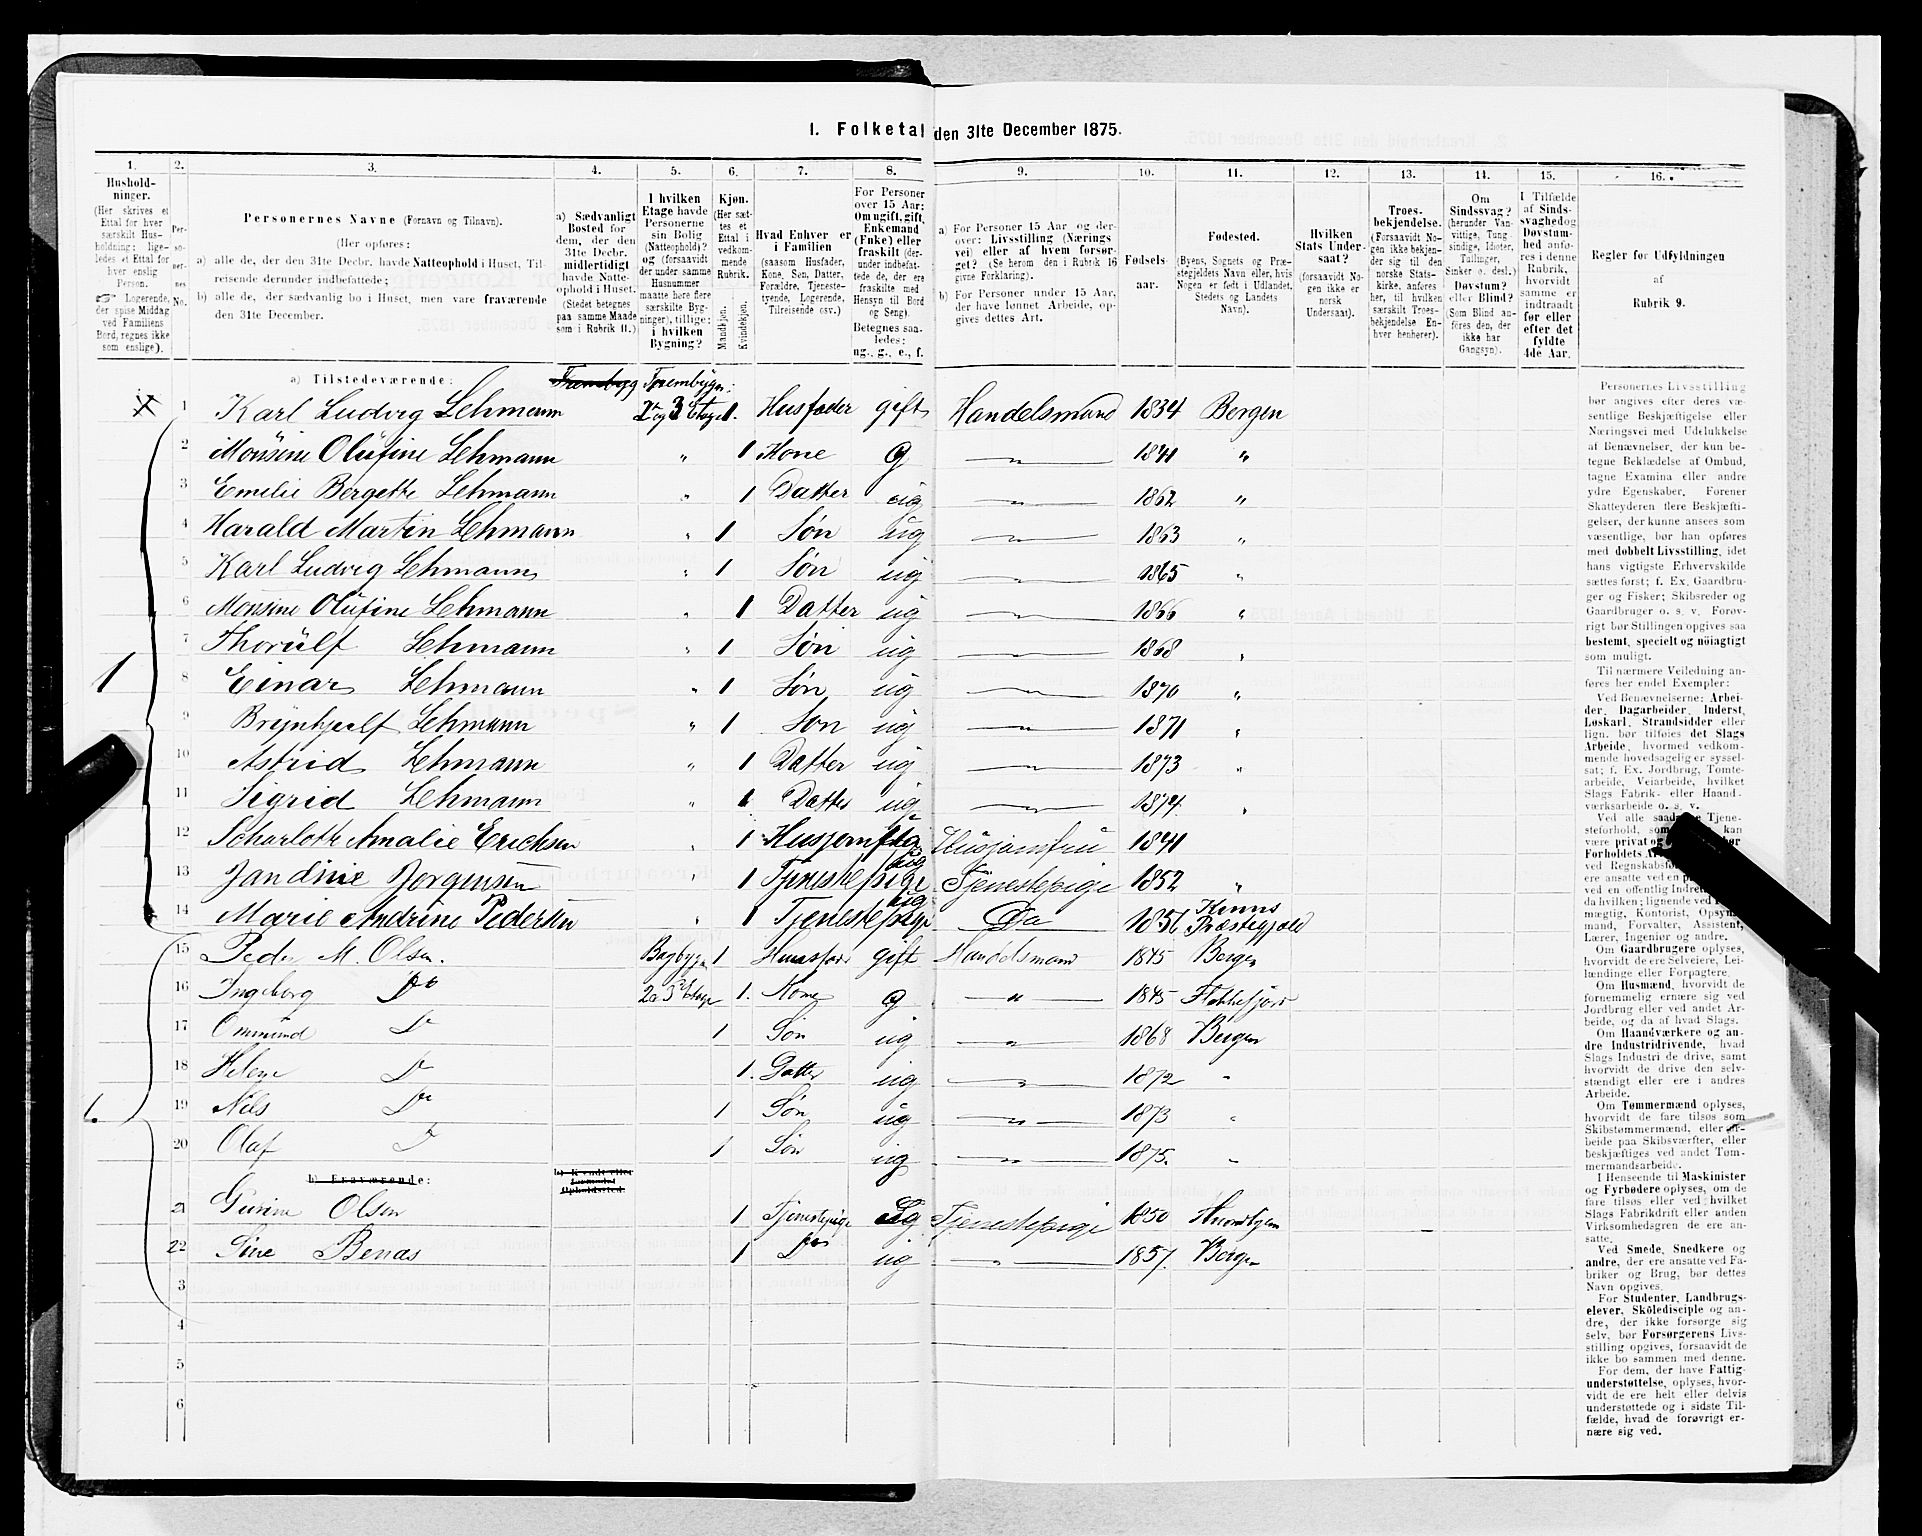 1. Folketal den 31te December 1875.
1. 2. 3. 4. 5. 6. 7. 8. 9. 10. 11. 12. 13. 14. 15. 16.
Hushold-
ninger.
(Her skrives et
Ettal for hver
særskilt Hus-
holdning; lige-
ledes et Ettal for
hver enslig
Person.
☞ Logerende,
der spise Middag
ved Familiens
Bord, regnes ikke
som enslige).
Per-
so-
ner-
nes
No.
Personernes Navne (Fornavn og Tilnavn).
(Her opføres:
a) alle de, der den 31te Decbr. havde Natteophold i Huset, Til-
reisende derunder indbefattede;
b) alle de, der sædvanlig bo i Huset, men vare fraværende
den 31te December.
a) Sædvanligt
Bosted for
dem, der den
31te Decbr.
midlertidigt
havde Natte-
ophold i Huset.
(Stedet betegnes
paa samme Maade
som i Rubrik 11.)
I hvilken
Etage havde
Personerne
sin Bolig
(Natteophold)?
og (forsaavidt
der under samme
Husnummer
maatte høre flere
særskilte Byg-
ninger), tillige:
i hvilken
Bygning?
Kjøn.
(Her sæt-
tes et
Ettal i
vedkom-
mende
Rubrik.
Mandkjøn.
Kvindekjøn.
Hvad Enhver er
i Familien
(saasom Husfader,
Kone, Søn, Datter,
Forældre, Tjeneste-
tyende, Logerende,
Tilreisende osv.)
For Personer
over 15 Aar:
Om ugift, gift,
Enkemand
(Enke) eller
fraskilt (der-
under indbefat-
tede de, der ere
fraskilte med
Hensyn til Bord
og Seng).
Betegnes saa-
ledes:
ug., g., e., f.
a) For Personer 15 Aar og der-
over: Livsstilling (Nærings-
vei) eller af hvem forsør-
get? (Se herom den i Rubrik 16
givne Forklaring).
b) For Personer under 15 Aar,
der have lønnet Arbeide, op-
gives dettes Art.
Fødsels-
aar.
Fødested.
(Byens, Sognets og Præ-
stegjeldets Navn eller, hvis
Nogen er født i Udlandet,
Stedets og Landets
Navn).
Hvilken
Stats Under-
saat?
(forsaavidt No-
gen ikke er
norsk
Undersaat).
Troes-
bekjendelse.
(Forsaavidt No-
gen ikke bekjen-
der sig til den
norske Stats-
kirke, anføres
her, til hvilken
særskilt Troes-
bekjendelse En-
hver henhører).
Om
Sindssvag?
(herunder Van-
vittige, Tung-
sindige, Idioter,
Tullinger,
Sinker o. desl.)
Døvstum?
eller Blind?
(Som Blind an-
føres den, der
ikke har
Gangsyn).
I Tilfælde
af Sinds-
svaghed og
Døvstum-
hed anfø-
res i denne
Rubrik,
hvorvidt
samme er
indtraadt
før eller
efter det
fyldte
4de Aar.
Regler for Udfyldningen
af
Rubrik 9.
a) Tilstedeværende: Forrembygn:
1 Karl Ludvig Lehmann 2 og 3 Etage 1. Husfader gift Handelsmand 1834 Bergen
2 Monsine Olufine Lehmann " 1 Kone g " 1841 "
3 Emelie Bergette Lehmann " 1 Datter ug " 1862 "
4 Harald Martin Lehmann " 1 Søn ug " 1863 "
5 Karl Ludvig Lehmann " 1 Søn ug " 1865 "
6 Monsine Olufine Lehmann 1 Datter ug " 1866 "
7 Thorulf Lehmann " 1 Søn ug " 1868 "
1
8 Einar Lehmann " 1 Søn ug " 1870 "
9 Brynhjulf Lehmann " 1 Søn ug " 1871 "
10 Astrid Lehmann " 1 Datter ug " 1873 "
11 Sigrid Lehmann " 1 Datter ug " 1874. "
12 Scharlotte Amalie Erichsen " 1 Husjomfru ug Husjomfru 1841
13 Jandine Jørgensen " 1 Tjenestepige ug Tjenestepige 1852 "
14 Marie Andrine Pedersen " 1 Tjenestepige ug Do 1856 Kinns Præstegjæld
15 Peder M. Olsen. Bagbygn 1 Huusfar gift Handelsmand 1845 Bergen
16 Ingeborg Do 2 a 3 Etage 1. Kone g " 1845 Flekkefjord
17 Ommund Do 1 Søn ug " 1868 Bergen
18 Helene Do 1. Datter ug " 1872 "
1.
19 Nils Do 1 Søn ug " 1873 "
20 Olaf Do 1 Søn ug " 1875. "
b) Fraværende: b) Kjendt eller formodet Opholdssted.
21 Gurine Olsen 1 Tjenestepige ug Tjenestepige 1850
22 Sine Benas 1 Do ug " 1857. Bergen
3
4
5
6
Personernes Livsstilling
bør angives efter deres væ-
sentlige Beskjæftigelse eller
Næringsvei med Udelukkelse
af Benævnelser, der kun be-
tegne Beklædelse af Ombud,
tagne Examina eller andre
ydre Egenskaber. Forener
Skatteyderen flere Beskjæfti-
gelser, der kunne ansees som
væsentlige, bør han opføres
med dobbelt Livsstilling, idet
hans vigtigste Erhvervskilde
sættes først; f. Ex. Gaardbru-
ger og Fisker; Skibsreder og
Gaardbruger o. s. v. Forøv-
rigt bør Stillingen opgives saa
bestemt, specielt og nøiagtigt
som muligt.
Til nærmere Veiledning an-
føres her endel Exempler:
Ved Benævnelserne: Arbei-
der, Dagarbeider, Inderst,
Løskarl, Strandsidder eller
lign. bør tilføies det Slags
Arbeide, hvormed vedkom-
mende hovedsagelig er syssel-
sat; f. Ex. Jordbrug, Tomte-
arbeide, Veiarbeide, hvilket
Slags Fabrik- eller Haand-
værksarbeide o. s. v.
Ved alle saadanne Tjene-
steforhold, som kan
være privat og
Forholdets
ved
ere ansatte ved en
ved en offentlig
da hvilken; lignende ved
mægtig, Kontorist, Opsyns-
mand, Forvalter, Assistent,
Lærer, Ingeniør og andre.
Om Gaardbrugere oplyses,
hvorvidt de ere Selveiere, Lei-
lændinge eller Forpagtere.
Om Husmænd, hvorvidt de
fornemmelig ernære sig ved
Jordbrug eller ved andet Ar-
beide, og da af hvad Slags.
Om Haandværkere og an-
dre Industridrivende, hvad
Slags Industri de drive, samt
hvorvidt de drive den selv-
stændigt eller ere i andres
Arbeide.
Om Tømmermænd oplyses,
hvorvidt de fare tilsøs som
Skibstømmermænd, eller ar-
beide paa Skibsværfter, eller
beskjæftiges ved andet Tøm-
mermandsarbeide.
I Henseende til Maskinister
og Fyrbødere oplyses, om de
fare tilsøs eller ved hvilket
Slags Fabrikdrift eller anden
Virksomhedsgren de ere an-
satte.
Ved Smede, Snedkere og
andre, der ere ansatte ved Fa-
briker og Brug, bør dettes
Navn opgives.
For Studenter, Landbrugs-
elever, Skoledisciple og an-
dre, der ikke forsørge sig
selv, bør Forsørgerens Livs-
stilling opgives, forsaavidt de
ikke bo sammen med denne.
For dem, der have Fattig-
understøttelse, oplyses, hvor-
vidt de ere helt eller delvis
understøttede og i sidste Til-
fælde, hvad de forøvrigt er-
nære sig ved.